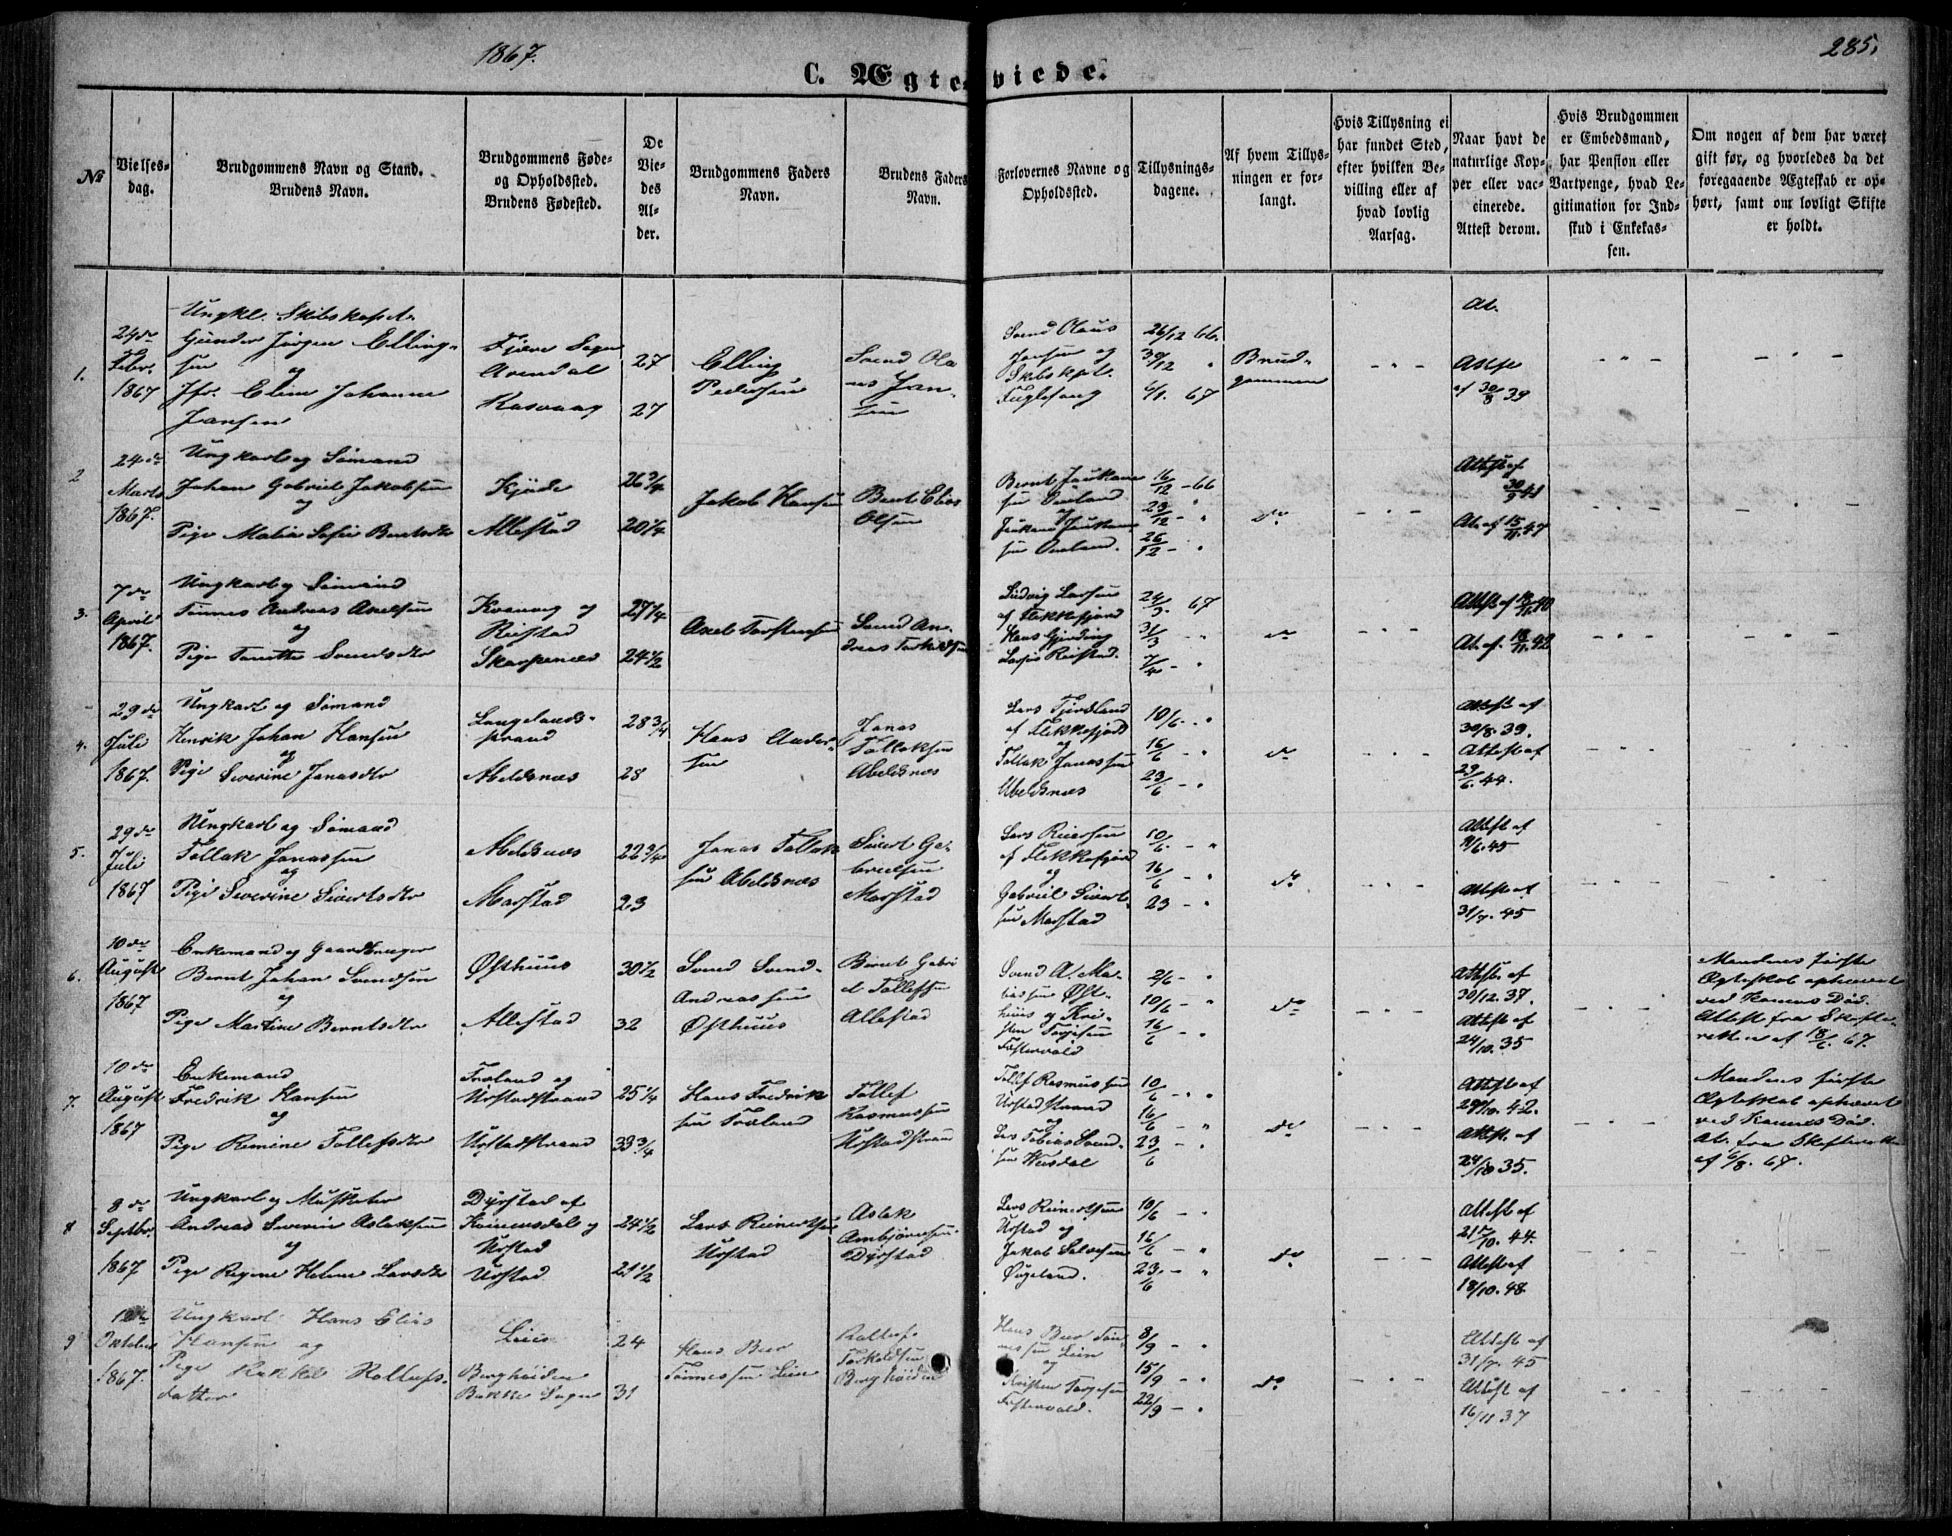 1867.
285.
C. Ægteviede.
No
Vielses-
dag.
Brudgommens Navn og Stand.
Brudens Navn.
Brudgommens Føde-
og Opholdssted.
Brudens Fødested.
De
Vie-
des
Al-
der.
Brudgommens Faders
Navn.
Brudens Faders
Navn.
Forlovernes Navne og
Opholdssted.
Tillysnings-
dagene.
Af hvem Tillys-
ningen er for-
langt.
Hvis Tillysning ei
har fundet Sted,
efter hvilken Be-
villing eller af
hvad lovlig
Aarsag.
Naar havt de
naturlige Kop-
per eller vac-
cinerede.
Attest derom.
Hvis Brudgommen
er Embedsmand,
har Pension eller
Vartpenge, hvad Le-
gitimation for Ind-
skud i Enkekas-
sen.
Om nogen af dem har været
gift før, og hvorledes da det
foregaaende Ægteskab er op-
hørt, samt om lovligt Skifte
er holdt.
1.
24de
Febr.
1867
Ungkl. Skibskapt.
Gunder Jörgen Elling-
sen
og
Jfr. Eline Johanne
Jansen
Fjære Sogn
Arendal
27
27
Elling
Pedersen
Svend Ola
us Jan-
sen
Svend Olaus
Jansen og
Skibskpt.
Fuglesang
26/12 66.
30/12 "
6/1. 67
Brud-
gommen
At.
Attest
af 30/8 39
2
24de
Marts
1867.
Ungkarl og Sömand
Johan Gabriel Jakobsen
og
Pige Malia Sofie Berntsdtr
Kjöde
Allestad
26 3/4
20 1/4
Jakob Hansen
Bent Elias
Olsen
16/12 - 66
23/12 - "
26/12 - "
do
Attest af
30/9 41
At. af 15/11. 47
3.
7de
April
1867.
Ungkarl og Sömand
Tönnes Andreas Axelsen
og
Pige Tonette Svendsdtr
og
Reistad
Skarpenæs
27 1/4
24 1/2
Axel Torstensen
Svend An-
dreas Torkildsen
Ludvig Larsen
af Flekkefjord
24/3. 67
31/3 - "
7/4 - "
do
4.
29de
Juli
1867.
Ungkarl og Sömand
Henrik Johan Hansen
og
Pige Severine Jonasdtr
Langelands-
strand
Abelsnæs
28 3/4
28
Hans Ander-
sen
Jonas
Tollaksen
Abelsnæs
af Flekkefjord
og
Tollak Jonassen
Abelsnæs
10/6 - "
16/6 - "
23/6 - "
do
Attest af
30/8. 39.
Attest af
23/6. 44.
5.
29de
Juli
1867
Ungkarl og Sömand
Tollak Jonassen
og
Pige Severine Sivertsdtr
Abelsnæs
Marstad
22 3/4
23
Jonas Tollak
sen Abelsnæs
Sivert Ga-
brielsen
Marstad
Lars Reiersen
af Flekkefjord
og
Gabriel Sivert-
sen Marstad
10/6. - "
16/6 - "
23 - "
do
Attest af
Attest af
31/7. 45
6.
10de
August
1867
Enkemand og Gaardbruger
Bernt Johan Svendsen
og
Pige Martine Berntsdtr
Østhuus
Allestad
30 1/2
32
Svend Svend-
Andreassen
Østhuus
Bernt Gabri
el Tollefsen
Allestad
Svend A. Ma-
thiassen Øst-
huus og Kri-
sten Torjesen
Fostervold
2/6 - "
10/6 - "
16/6 - "
do
Attest af
30/12. 37.
Attest af
24/10. 35
Mandens förste
Ægteskab ophævet
ved Konens Död.
Attest fra Skifte-
retten af 18/6. 67.
7.
10de
August
1867
Enkemand
Fredrik Hansen
og
Pige Romine Tollefsdtr
Træland og
Urstadstrand
Urstadstrand
25 1/4
33 3/4
Hans Fredrik
sen Træland
Tollef
Rasmussen
Urstadstrand
Tollef Rasmussen
Urstadstrand
og
Tobias Svend-
sen
10/6 - "
16/6 - "
23/6 - "
do
Attest af
29/10. 42.
Attest. af
24/10 35.
Mandens förste
Ægteskab ophævet
ved Konens Död.
At. fra Skifteretten
af 6/8. 67.
8
8de
Septbr.
1867
Ungkarl og Musketer
Andreas Severin Aslaksen
og
Pige Regine Helene Larsdtr
Dyrstad af
Kvinesdal og
Urstad
Urstad
24 1/2
21 1/2
Lars Reinertsen
Urstad
Aslak
Ambjörnsen
Dyrstad
Lars Reinertsen
Urstad og
Jakob Salvesen
Øygeland.
10/6 - "
16/6 - "
23/6 - "
do
Attest af
21/10. 44.
Attest af
18/10. 48
9
Oktober
1867.
Ungkarl Hans Elias
Hansen og
Pige Rakkel Rollefs-
datter
Leie
Berghöiden
Bakke Sogn
24
31
Hans Beer
Tönnessen Leie
Rollef
Torkeldsen
Berghöiden
Hans Beer Tön-
nessen Leie
og
Kristen Torgesen
Fostervold.
8/9 - "
15/9 - "
22/9 - "
do
Attest af
31/7. 45
Attest af
16/11 37